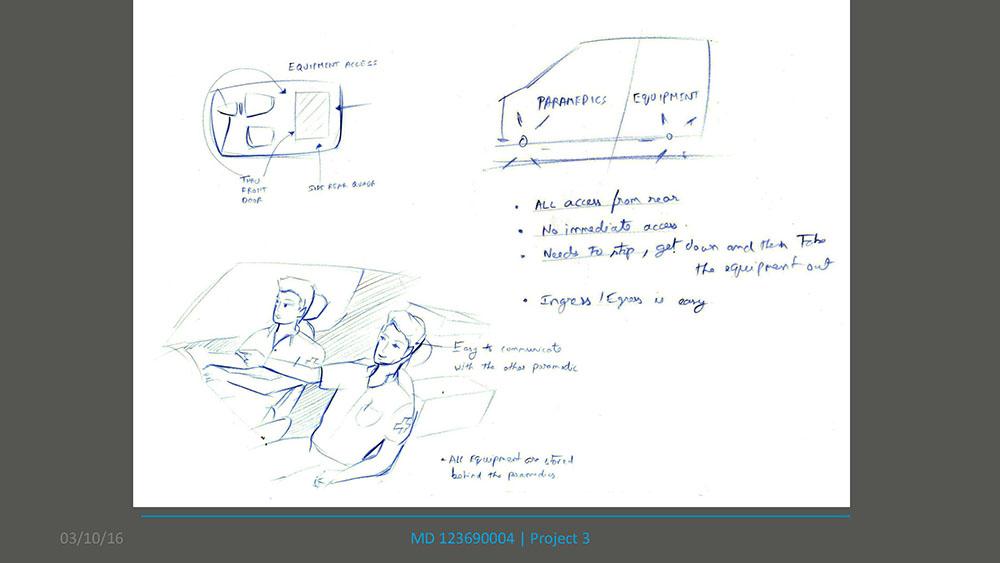 EQUIPMENT ACCESS
THRU
FRONT
DOOR
SIDE REAR
PARAMEDICS
EQUIPMENT
• ALL access from rear
• No immediate access.
• Needs to stop, get down and then Take
the equipment out
• Ingress / Egress is easy
Easy to communicate
with the other paramedic
• All Equipment are stored
behind the paramedics
03/10/16
MD 123690004 | Project 3